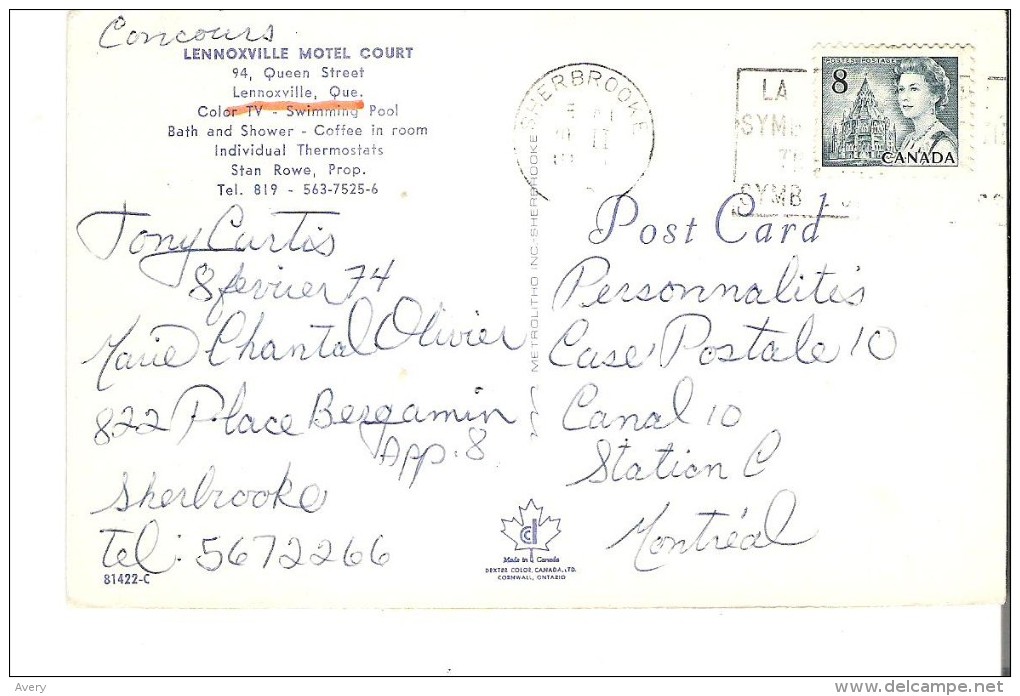 Concours
LENNOXVILLE MOTEL COURT
94, Queen Street
Lennoxville, Que.
Color TV - Swimming Pool
Bath and Shower - Coffee in room
Individual Thermostats
Stan Rowe, Prop.
Tel. 819 - 563-7525-6
Tony Curtis
8 fevrier 74
Marie Chantal Olivier
822 Place Bergamin
App. 8
Sherbrooke
Tel: 5672266
81422-C
METROLITHO INC-SHERBROOKE
Made in Canada
DEXTER COLOR CANADA, LTD.
CORNWALL, ONTARIO
SHERBROOKE
II
LA
SYMB
SYMB
POSTES POSTAGE
8
CANADA
Post Card
Personnalités
Case Postale 10
Canal 10
Station C
Montréal
Avery
delcampe.net